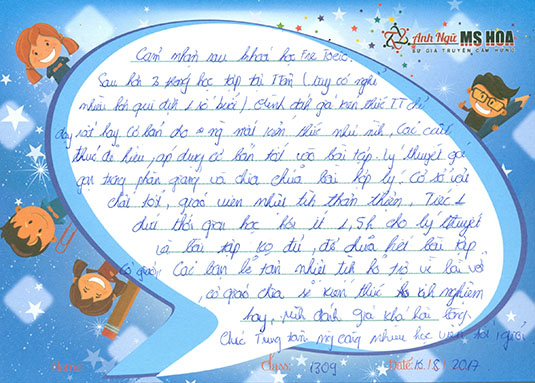 Anh Ngữ MS HOA
SỨ GIẢ TRUYỀN CẢM HỨNG
Cảm nhận sau khoá học Pre TOEIC.
Sau hơn 3 tháng học tập tại TTâm (tuy có nghỉ
nhiều hơn qui định 1 số buổi). Mình đánh giá kiến thức TT chỉ
dạy rất hay cơ bản cho ng mất kiến thức như mình, Các cấu
thức dễ hiểu, áp dụng cơ bản tốt vào bài tập. Lý thuyết gói
gọn trong phần giảng và chia chữa bài hợp lý. Cơ sở vật
chất tốt, giáo viên nhiệt tình thân thiện, Tiếc 1
dưới thời gian học hơi ít 1,5h cho lý thuyết
và bài tập ko đủ, để chữa hết bài tập
Các bạn lễ tân nhiệt tình hỗ trợ về bài vở
Cô giáo
, cô giáo chia sẻ kiến thức kinh nghiệm
hay, mình đánh giá khá hài lòng.
Chúc Trung tâm ng càng nhiều học viên tới,
Name: Class: 1309 Date: 15/8/2017